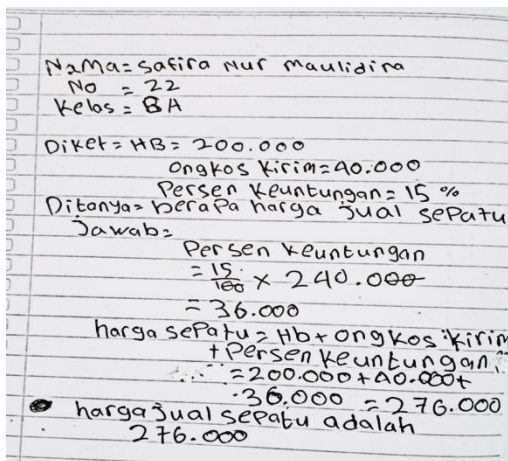 Nama = Safira Nur Maulidina
No = 22
Kelas = 8A
Diket = HB = 200.000
Ongkos Kirim = 40.000
Persen Keuntungan = 15 %
Ditanya = berapa harga Jual Sepatu
Jawab =
Persen Keuntungan
= 15/100 × 240.000
= 36.000
harga Sepatu = Hb + Ongkos Kirim
+ Persen Keuntungan
= 200.000 + 40.000 +
36.000 = 276.000
harga Jual Sepatu adalah
276.000